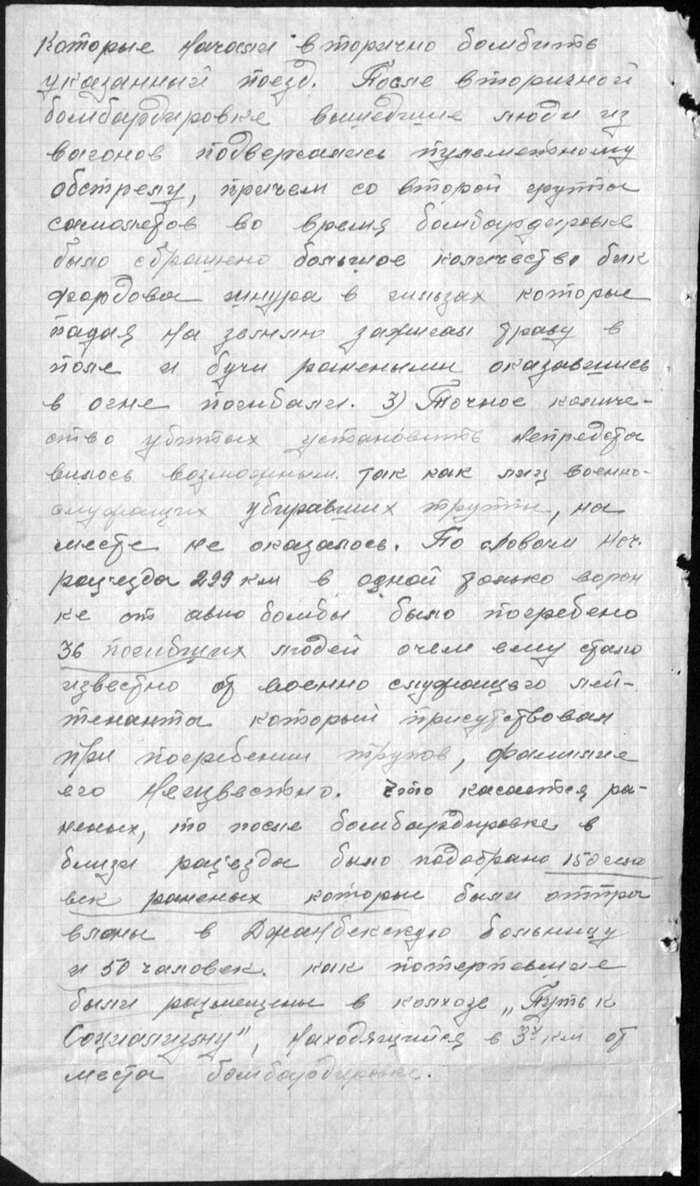 которые начали вторично бомбить
указанный поезд. После вторичной
бомбардировке вышедшие люди из
вагонов подвергались пулеметному
обстрелу, причем со второй групы
самолетов во время бомбардировке
было сброшено большое количество бик
фордова шнура в гильзах которые
падая на землю зажгла траву в
поле и бучи ранеными оказавшись
в огне погибали. 3) Точное количе-
ство убитых установить непредста
вилось возможным так как лиц военно-
служащих убиравших трупы, на
месте не оказалось. По словам нач.
раз'езда 299 км в одной только ворон
ке от авио бомбы было погребено
36 погибших людей очем ему стало
известно от военно служащего лей-
тенанта который присутствовал
при погребении трупов, фамилие
его неизвестно. Что касается ра-
неных, то после бомбардировке в
близи раз'езда было подобрано 150 чело
век раненых которые были оттпра
влены в Джанбекскую больницу
и 50 человек. как потерпевшие
были размещены в колхозе „Путь к
Социализму", находящийся в 3х км от
места бомбардировке.